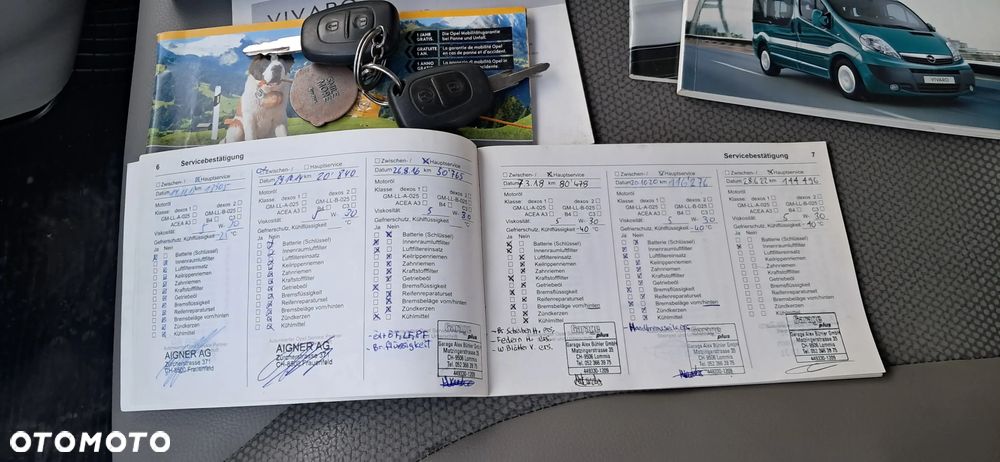 VIVARO
1 JAHR GRATIS.
Die Opel Mobilitätsgarantie bei Panne und Unfall.
GRATUITE 1 AN.
La garantie de mobilité Opel en cas de panne et d'accident.
1 ANNO
VIVARO
6 Servicebestätigung
Zwischen- / Hauptservice
Datum km
Motoröl
Klasse dexos 1 dexos 2
GM-LL-A-025 GM-LL-B-025
ACEA A3 B4 C3
Viskosität 5 W- 30
Gefrierschutz, Kühlflüssigkeit °C
Ja Nein
Batterie (Schlüssel)
Innenraumluftfilter
Luftfiltereinsatz
Keilrippenriemen
Zahnriemen
Kraftstofffilter
Getriebeöl
Bremsflüssigkeit
Reifenreparaturset
Bremsbeläge vorn/hinten
Zündkerzen
Kühlmittel
AIGNER AG.
Zürcherstrasse 371
CH-8500 Frauenfeld
Zwischen- / Hauptservice
Datum km 20'840
Motoröl
Klasse dexos 1 dexos 2
GM-LL-A-025 GM-LL-B-025
ACEA A3 B4 C3
Viskosität 5 W- 30
Gefrierschutz, Kühlflüssigkeit °C
Ja Nein
Batterie (Schlüssel)
Innenraumluftfilter
Luftfiltereinsatz
Keilrippenriemen
Zahnriemen
Kraftstofffilter
Getriebeöl
Bremsflüssigkeit
Reifenreparaturset
Bremsbeläge vorn/hinten
Zündkerzen
Kühlmittel
AIGNER AG.
Zürcherstrasse 371
CH-8500 Frauenfeld
Zwischen- / Hauptservice
Datum 26.8.16 km 50'765
Motoröl
Klasse dexos 1 dexos 2
GM-LL-A-025 GM-LL-B-025
ACEA A3 B4 C3
Viskosität 5 W- 30
Gefrierschutz, Kühlflüssigkeit °C
Ja Nein
Batterie (Schlüssel)
Innenraumluftfilter
Luftfiltereinsatz
Keilrippenriemen
Zahnriemen
Kraftstofffilter
Getriebeöl
Bremsflüssigkeit
Reifenreparaturset
Bremsbeläge vorn/hinten
Zündkerzen
Kühlmittel
- Br. flüssigkeit
garage plus
Garage Alex Bühler GmbH
Matzingerstrasse 35
CH-9506 Lommis
Tel. 052 366 39 75
449330-1309
Servicebestätigung 7
Zwischen- / Hauptservice
Datum 7.3.18 km 80'479
Motoröl
Klasse dexos 1 dexos 2
GM-LL-A-025 GM-LL-B-025
ACEA A3 B4 C3
Viskosität 5 W- 30
Gefrierschutz, Kühlflüssigkeit -40 °C
Ja Nein
Batterie (Schlüssel)
Innenraumluftfilter
Luftfiltereinsatz
Keilrippenriemen
Zahnriemen
Kraftstofffilter
Getriebeöl
Bremsflüssigkeit
Reifenreparaturset
Bremsbeläge vorn/hinten
Zündkerzen
Kühlmittel
- Br Scheiben H. ers.
- Federn H. ers.
- W Blätter V. ers.
garage plus
Garage Alex Bühler GmbH
Matzingerstrasse 35
CH-9506 Lommis
Tel. 052 366 39 75
449330-1309
Zwischen- / Hauptservice
Datum 20.10.20 km 116'276
Motoröl
Klasse dexos 1 dexos 2
GM-LL-A-025 GM-LL-B-025
ACEA A3 B4 C3
Viskosität 5 W- 30
Gefrierschutz, Kühlflüssigkeit -40 °C
Ja Nein
Batterie (Schlüssel)
Innenraumluftfilter
Luftfiltereinsatz
Keilrippenriemen
Zahnriemen
Kraftstofffilter
Getriebeöl
Bremsflüssigkeit
Reifenreparaturset
Bremsbeläge vorn/hinten
Zündkerzen
Kühlmittel
garage plus
Garage Alex Bühler GmbH
Matzingerstrasse 35
CH-9506 Lommis
Tel. 052 366 39 75
449330-1309
Zwischen- / Hauptservice
Datum 28.6.22 km
Motoröl
Klasse dexos 1 dexos 2
GM-LL-A-025 GM-LL-B-025
ACEA A3 B4 C3
Viskosität 5 W- 30
Gefrierschutz, Kühlflüssigkeit -40 °C
Ja Nein
Batterie (Schlüssel)
Innenraumluftfilter
Luftfiltereinsatz
Keilrippenriemen
Zahnriemen
Kraftstofffilter
Getriebeöl
Bremsflüssigkeit
Reifenreparaturset
Bremsbeläge vorn/hinten
Zündkerzen
Kühlmittel
garage plus
Garage Alex Bühler GmbH
Matzingerstrasse 35
CH-9506 Lommis
Tel. 052 366 39 75
449330-1309
OTOMOTO